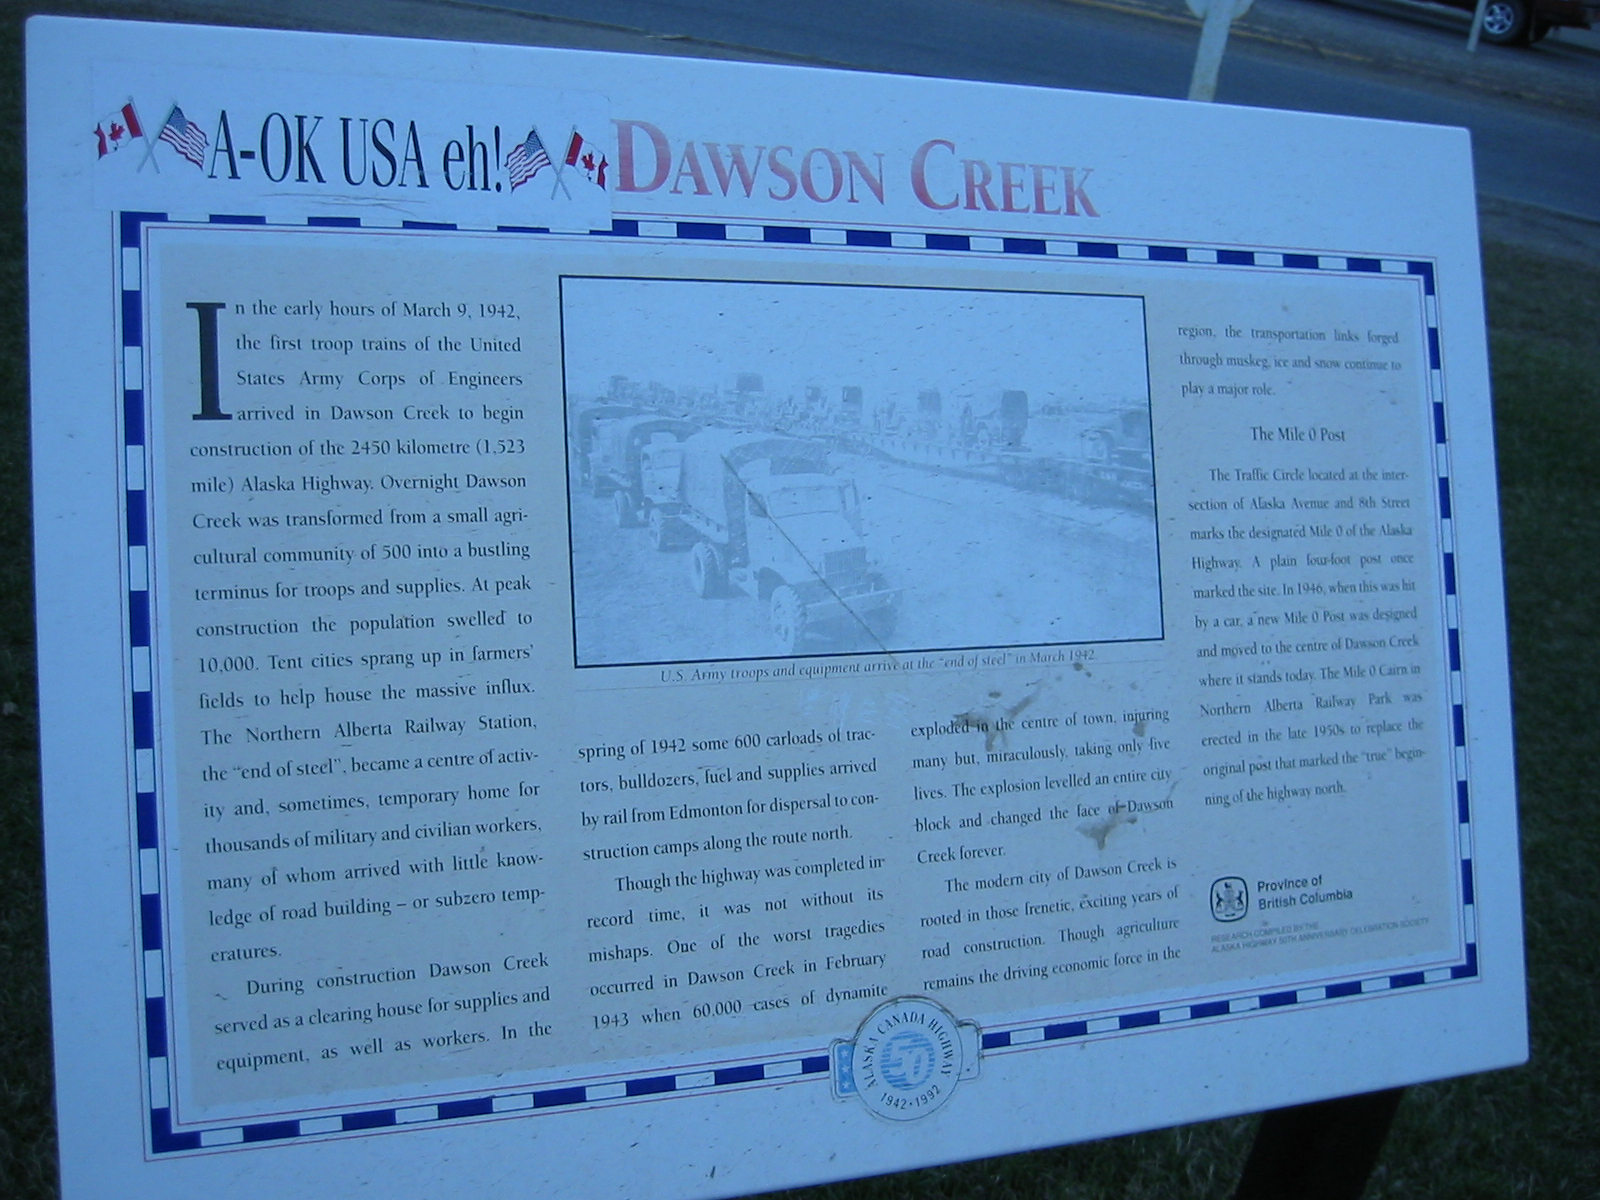 A-OK USA eh! DAWSON CREEK
In the early hours of March 9, 1942,
the first troop trains of the United
States Army Corps of Engineers
arrived in Dawson Creek to begin
construction of the 2450 kilometre (1,523
mile) Alaska Highway. Overnight Dawson
Creek was transformed from a small agri-
cultural community of 500 into a bustling
terminus for troops and supplies. At peak
construction the population swelled to
10,000. Tent cities sprang up in farmers'
fields to help house the massive influx.
The Northern Alberta Railway Station,
the "end of steel", became a centre of activ-
ity and, sometimes, temporary home for
thousands of military and civilian workers,
many of whom arrived with little know-
ledge of road building – or subzero temp-
eratures.
During construction Dawson Creek
served as a clearing house for supplies and
equipment, as well as workers. In the
U.S. Army troops and equipment arrive at the "end of steel" in March 1942
spring of 1942 some 600 carloads of trac-
tors, bulldozers, fuel and supplies arrived
by rail from Edmonton for dispersal to con-
struction camps along the route north.
Though the highway was completed in
record time, it was not without its
mishaps. One of the worst tragedies
occurred in Dawson Creek in February
1943 when 60,000 cases of dynamite
exploded in the centre of town, injuring
many but, miraculously, taking only five
lives. The explosion levelled an entire city
block and changed the face of Dawson
Creek forever.
The modern city of Dawson Creek is
rooted in those frenetic, exciting years of
road construction. Though agriculture
remains the driving economic force in the
region, the transportation links forged
through muskeg, ice and snow continue to
play a major role.
The Mile 0 Post
The Traffic Circle located at the inter-
section of Alaska Avenue and 8th Street
marks the designated Mile 0 of the Alaska
Highway. A plain four-foot post once
marked the site. In 1946, when this was hit
by a car, a new Mile 0 Post was designed
and moved to the centre of Dawson Creek
where it stands today. The Mile 0 Cairn in
Northern Alberta Railway Park was
erected in the late 1950s to replace the
original post that marked the "true" begin-
ning of the highway north.
Province of
British Columbia
RESEARCH COMPILED BY THE
ALASKA HIGHWAY 50TH ANNIVERSARY CELEBRATION SOCIETY
ALASKA CANADA HIGHWAY
50
1942·1992